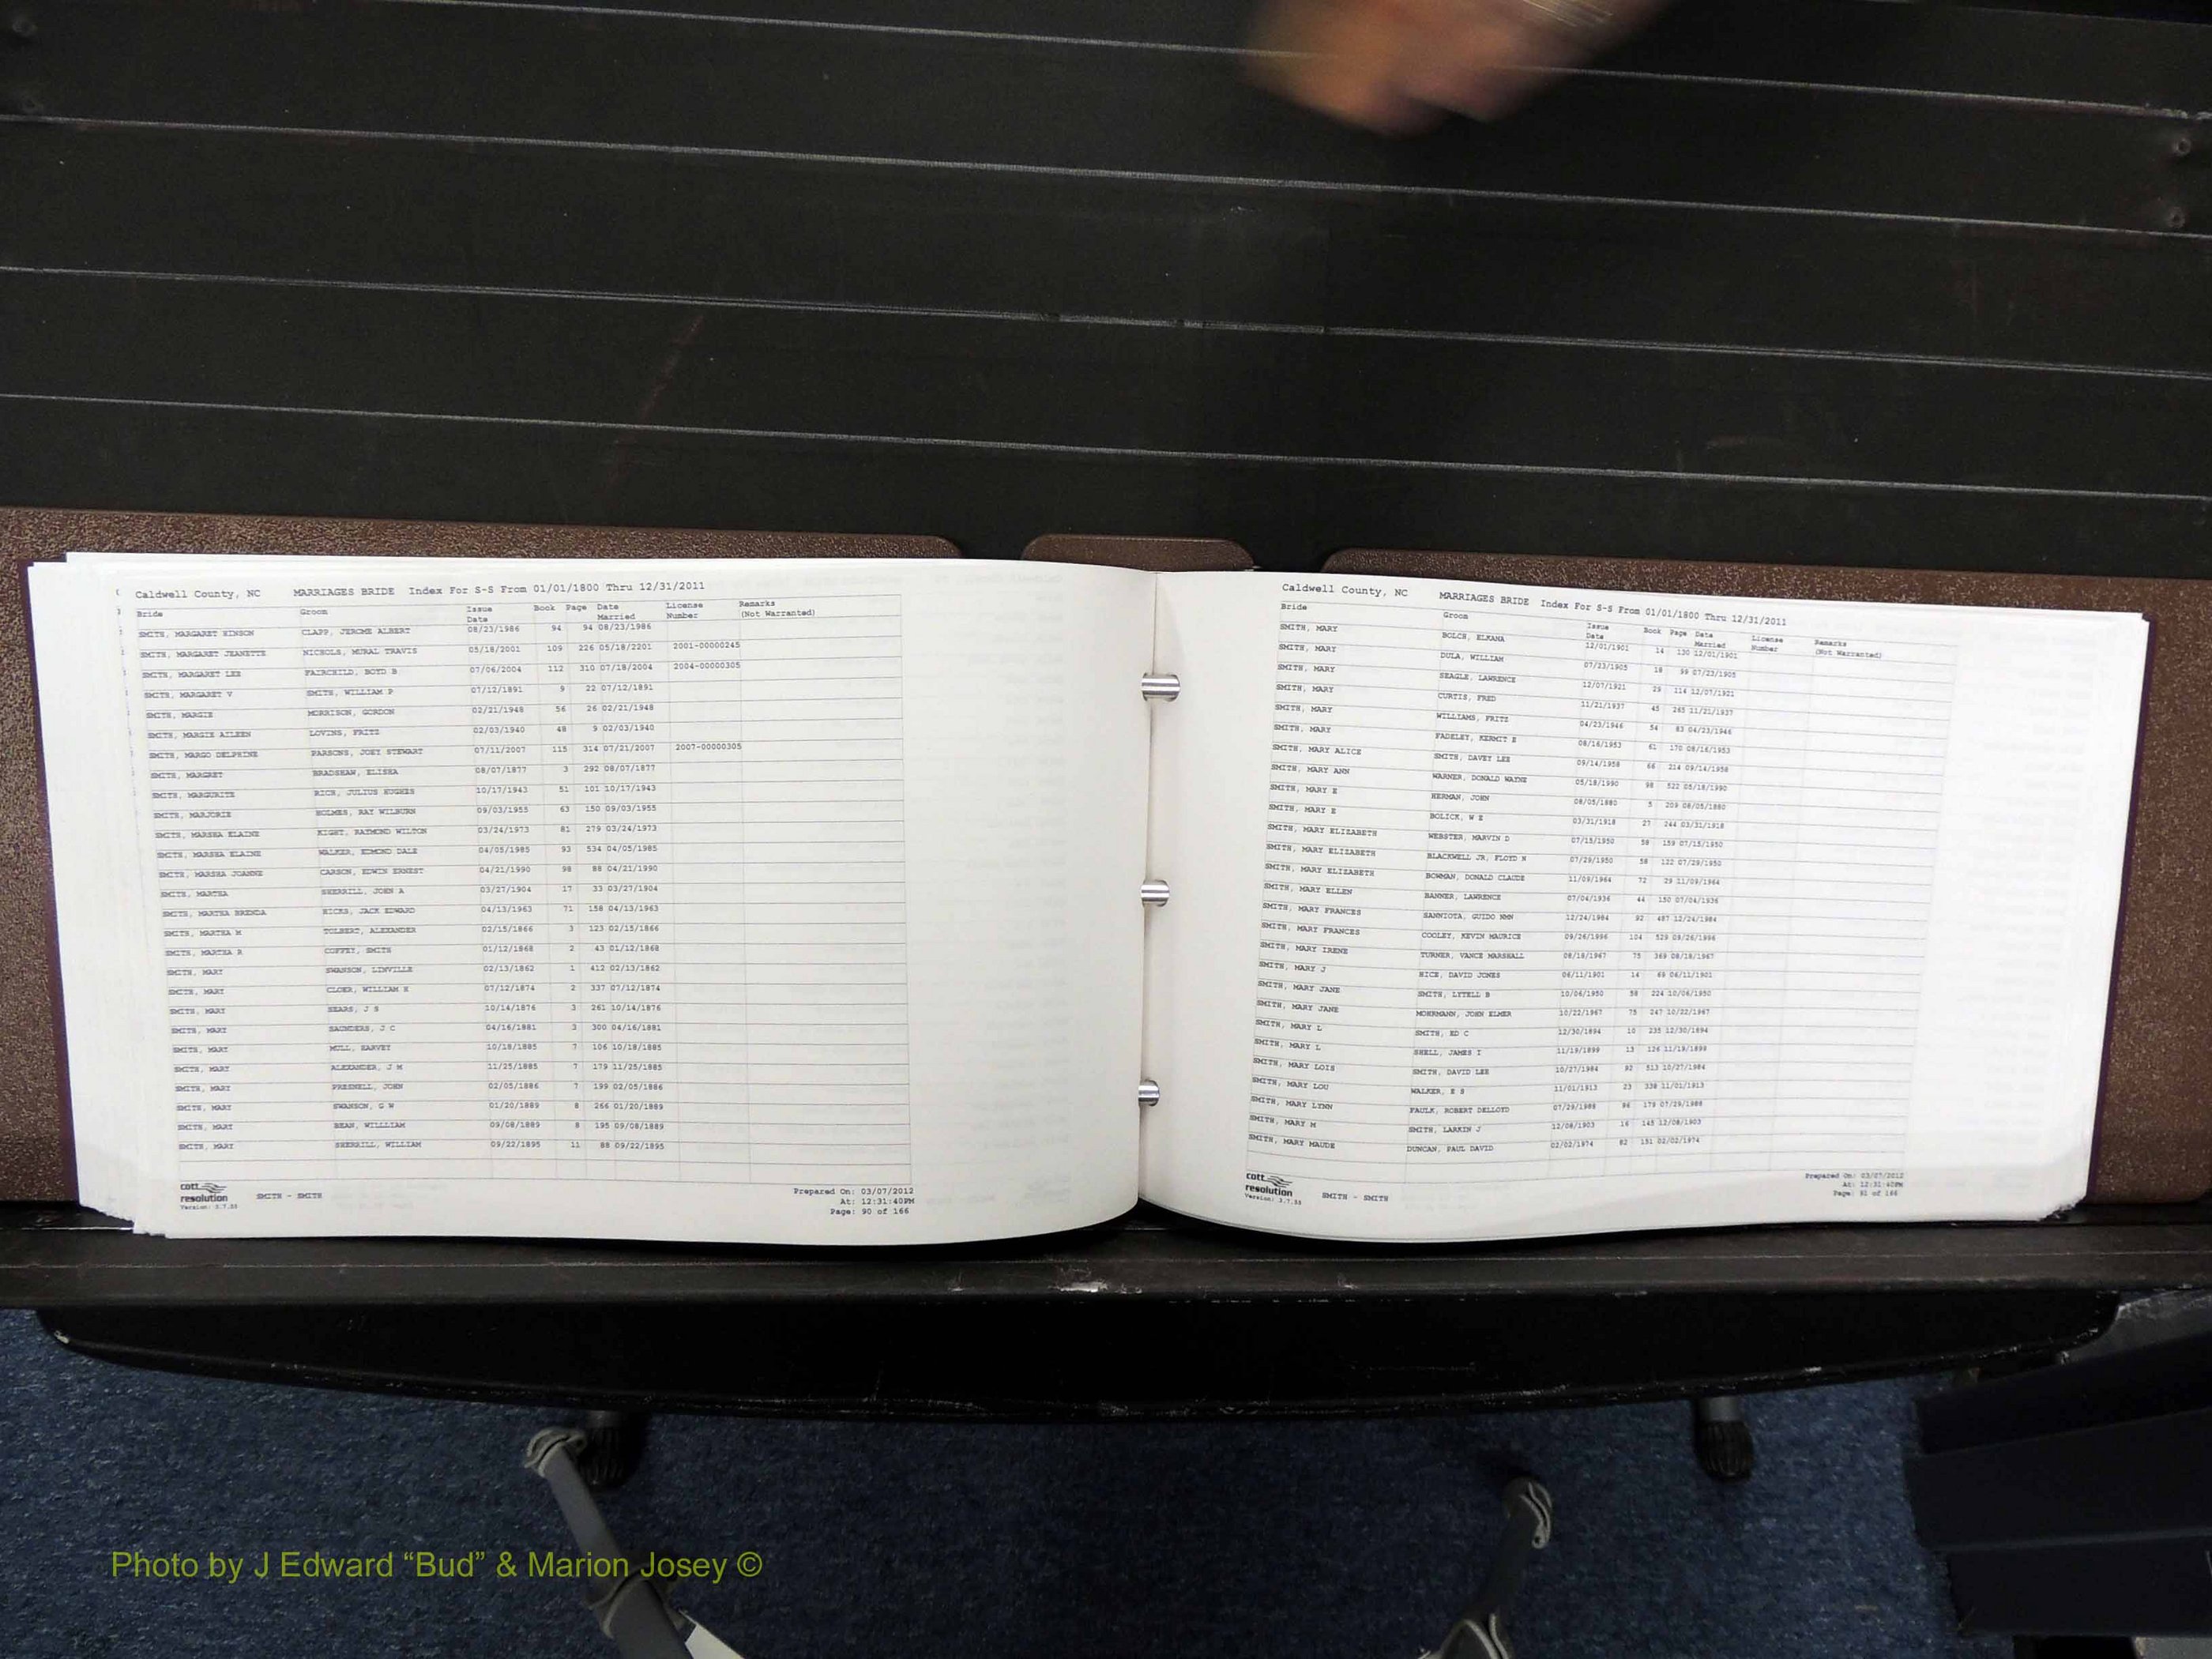 Caldwell County, NC MARRIAGES BRIDE Index For S-S From 01/01/1800 Thru 12/31/2011
Bride Groom Issue Date Book Page Date Married License Number Remarks (Not Warranted)
SMITH, MARGARET HINSON CLAPP, JEROME ALBERT 08/23/1986 94 94 08/23/1986
SMITH, MARGARET JEANETTE NICHOLS, MURAL TRAVIS 05/18/2001 109 226 05/18/2201 2001-00000245
SMITH, MARGARET LEE FAIRCHILD, BOYD B 07/06/2004 112 310 07/18/2004 2004-00000305
SMITH, MARGARET V SMITH, WILLIAM P 07/12/1891 9 22 07/12/1891
SMITH, MARGIE MORRISON, GORDON 02/21/1948 56 26 02/21/1948
SMITH, MARGIE AILEEN LOVINS, FRITZ 02/03/1940 48 9 02/03/1940
SMITH, MARGO DELPHINE PARSONS, JOEY STEWART 07/11/2007 115 314 07/21/2007 2007-00000305
SMITH, MARGRET BRADSHAW, ELISHA 08/07/1877 3 292 08/07/1877
SMITH, MARGURITE RICH, JULIUS HUGHES 10/17/1943 51 101 10/17/1943
SMITH, MARJORIE HOLMES, RAY WILBURN 09/03/1955 63 150 09/03/1955
SMITH, MARSHA ELAINE KIGHT, RAYMOND WILTON 03/24/1973 81 279 03/24/1973
SMITH, MARSHA ELAINE WALKER, EDMOND DALE 04/05/1985 93 534 04/05/1985
SMITH, MARSHA JOANNE CARSON, EDWIN ERNEST 04/21/1990 98 88 04/21/1990
SMITH, MARTHA SHERRILL, JOHN A 03/27/1904 17 33 03/27/1904
SMITH, MARTHA BRENDA HICKS, JACK EDWARD 04/13/1963 71 158 04/13/1963
SMITH, MARTHA M TOLBERT, ALEXANDER 02/15/1866 3 123 02/15/1866
SMITH, MARTHA R COFFEY, SMITH 01/12/1868 2 43 01/12/1868
SMITH, MARY SWANSON, LINVILLE 02/13/1862 1 412 02/13/1862
SMITH, MARY CLOER, WILLIAM H 07/12/1874 2 337 07/12/1874
SMITH, MARY SEARS, J S 10/14/1876 3 261 10/14/1876
SMITH, MARY SAUNDERS, J C 04/16/1881 3 300 04/16/1881
SMITH, MARY MULL, HARVEY 10/18/1885 7 106 10/18/1885
SMITH, MARY ALEXANDER, J M 11/25/1885 7 179 11/25/1885
SMITH, MARY PRESNELL, JOHN 02/05/1886 7 199 02/05/1886
SMITH, MARY SWANSON, G W 01/20/1889 8 266 01/20/1889
SMITH, MARY BEAN, WILLLIAM 09/08/1889 8 195 09/08/1889
SMITH, MARY SHERRILL, WILLIAM 09/22/1895 11 88 09/22/1895
cott resolution Version: 3.7.55 SMITH - SMITH
Prepared On: 03/07/2012
At: 12:31:40PM
Page: 90 of 166
Caldwell County, NC MARRIAGES BRIDE Index For S-S From 01/01/1800 Thru 12/31/2011
Bride Groom Issue Date Book Page Date Married License Number Remarks (Not Warranted)
SMITH, MARY BOLCH, ELKANA 12/01/1901 14 130 12/01/1901
SMITH, MARY DULA, WILLIAM 07/23/1905 18 99 07/23/1905
SMITH, MARY SEAGLE, LAWRENCE 12/07/1921 29 114 12/07/1921
SMITH, MARY CURTIS, FRED 11/21/1937 45 265 11/21/1937
SMITH, MARY WILLIAMS, FRITZ 04/23/1946 54 83 04/23/1946
SMITH, MARY FADELEY, KERMIT E 08/16/1953 61 170 08/16/1953
SMITH, MARY ALICE SMITH, DAVEY LEE 09/14/1958 66 214 09/14/1958
SMITH, MARY ANN WARNER, DONALD WAYNE 05/18/1990 98 522 05/18/1990
SMITH, MARY E HERMAN, JOHN 08/05/1880 5 209 08/05/1880
SMITH, MARY E BOLICK, W E 03/31/1918 27 244 03/31/1918
SMITH, MARY ELIZABETH WEBSTER, MARVIN D 07/15/1950 58 159 07/15/1950
SMITH, MARY ELIZABETH BLACKWELL JR, FLOYD N 07/29/1950 58 122 07/29/1950
SMITH, MARY ELIZABETH BOWMAN, DONALD CLAUDE 11/09/1964 72 29 11/09/1964
SMITH, MARY ELLEN BANNER, LAWRENCE 07/04/1936 44 150 07/04/1936
SMITH, MARY FRANCES SANNIOTA, GUIDO NMN 12/24/1984 92 487 12/24/1984
SMITH, MARY FRANCES COOLEY, KEVIN MAURICE 09/26/1996 104 529 09/26/1996
SMITH, MARY IRENE TURNER, VANCE MARSHALL 08/18/1967 75 369 08/18/1967
SMITH, MARY J HICE, DAVID JONES 06/11/1901 14 69 06/11/1901
SMITH, MARY JANE SMITH, LYTELL B 10/06/1950 58 224 10/06/1950
SMITH, MARY JANE MOHRMANN, JOHN ELMER 10/22/1967 75 247 10/22/1967
SMITH, MARY L SMITH, ED C 12/30/1894 10 235 12/30/1894
SMITH, MARY L SHELL, JAMES I 11/19/1899 13 126 11/19/1899
SMITH, MARY LOIS SMITH, DAVID LEE 10/27/1984 92 513 10/27/1984
SMITH, MARY LOU WALKER, E S 11/01/1913 23 338 11/01/1913
SMITH, MARY LYNN FAULK, ROBERT DELLOYD 07/29/1988 96 179 07/29/1988
SMITH, MARY M SMITH, LARKIN J 12/08/1903 16 145 12/08/1903
SMITH, MARY MAUDE DUNCAN, PAUL DAVID 02/02/1974 82 151 02/02/1974
cott resolution Version: 3.7.55 SMITH - SMITH
Prepared On: 03/07/2012
At: 12:31:40PM
Page: 91 of 166
Photo by J Edward “Bud” & Marion Josey ©